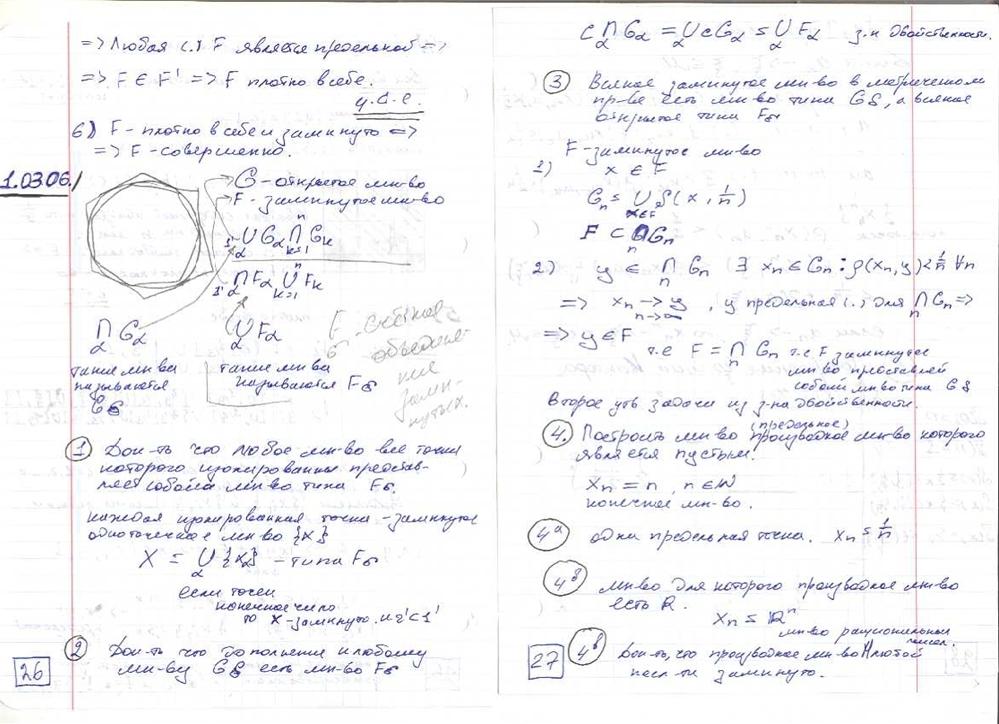 => Любая (.) F является предельной =>
=> F ∈ F' => F плотно в себе.
ч.т.д.
б) F - плотно в себе и замкнуто =>
=> F - совершенно.
1.03.06.
G - открытое мн-во
F - замкнутое мн-во
1' ∪ Gα ∩ Gk
α k=1 n
1' ∩ Fα ∪ Fk
α k=1 n
∩ Gα
α
∪ Fα
α
такие мн-ва называются Gδ
такие мн-ва называются Fσ
Fσ - счётное объединение замкнутых.
① Док-ть что любое мн-во все точки
которого изолированны представ-
ляет собой мн-во типа Fσ.
каждая изолированная точка - замкнутое
одноточечное мн-во {x}
X = ∪ {xα} - типа Fσ
α
если точек
конечное число
то X - замкнуто.
② Док-ть что дополнение к любому
мн-ву Gδ есть мн-во Fσ
26
C ∩ Gα = ∪ CGα = ∪ Fα з-н двойственности.
α α α
③ Всякое замкнутое мн-во в метрическом
пр-ве есть мн-во типа Gδ, а всякое
открытое типа Fσ
F - замкнутое мн-во
1) x ∈ F
Gn = ∪ S(x, 1/n)
x∈F
F ⊂ ∩ Gn
n
2) y ∈ ∩ Gn ∃ xn ∈ Gn : ρ(xn, y) < 1/n ∀n
n
=> xn → y, y предельная (.) для ∩ Gn =>
n→∞ n
=> y ∈ F
т.е F = ∩ Gn т.е. F замкнутое
n
мн-во представляет
собой мн-во типа Gδ
Второе утв задачи из з-на двойственности.
(предельное)
④. Построить мн-во производное мн-во которого
является пустым.
Xn = n, n ∈ N
конечное мн-во.
4а одна предельная точка. Xn = 1/n
4б мн-во для которого производное мн-во
есть R.
мн-во рациональных
чисел.
4в Док-ть, что производное мн-во любой
посл-ти замкнуто.
27